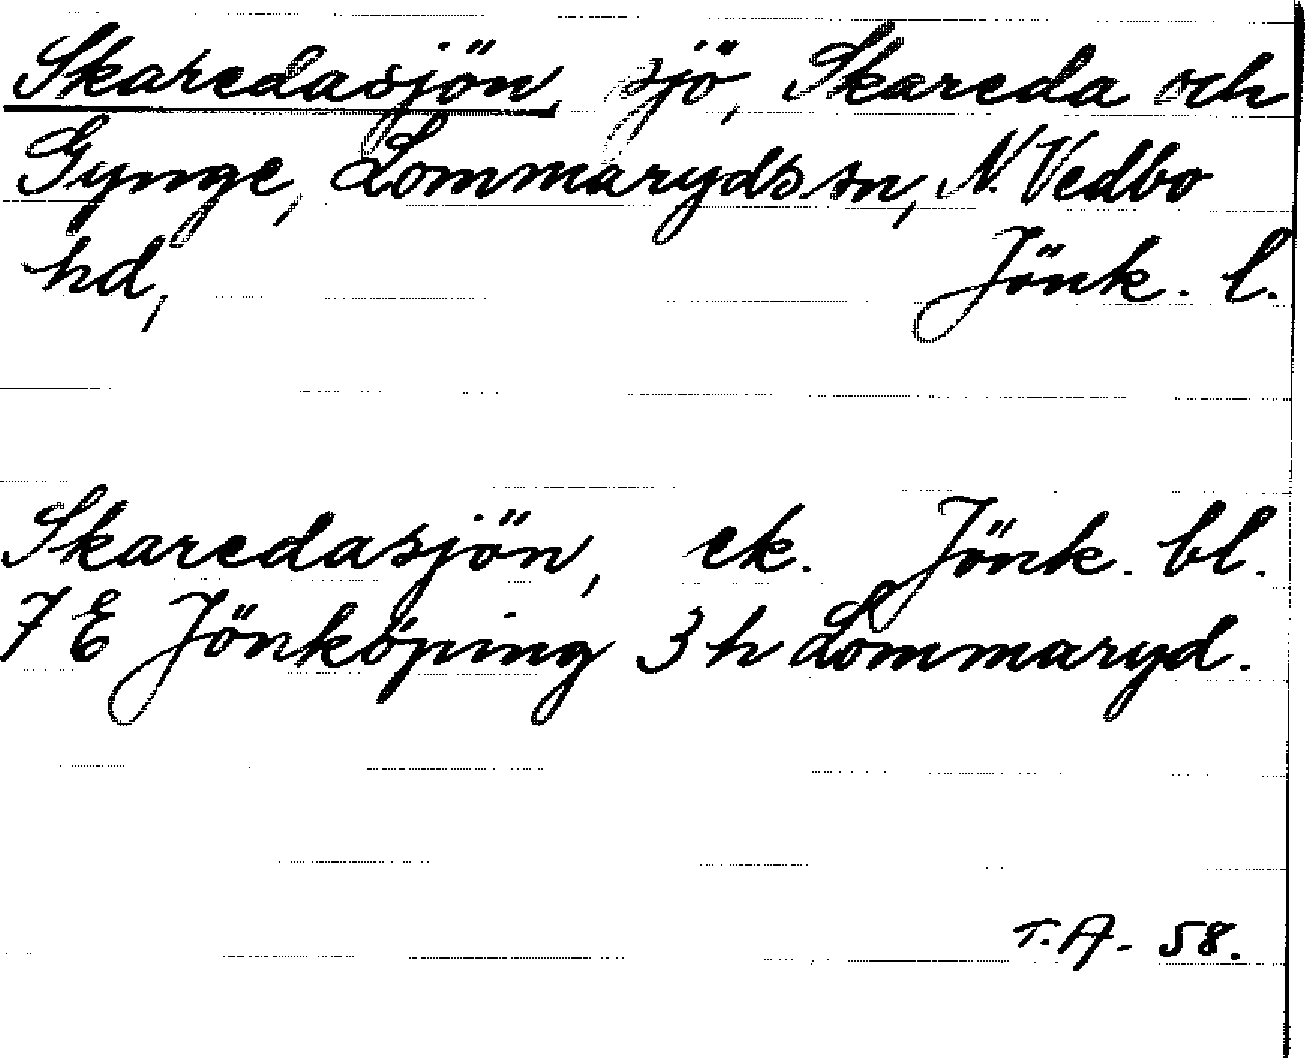 Skaredasjön, sjö, Skareda och
Gynge, Lommaryds sn, N. Vedbo
hd, Jönk. l.
Skaredasjön, ek. Jönk. bl.
7 E Jönköping 3 h Lommaryd.
T. A. 58.